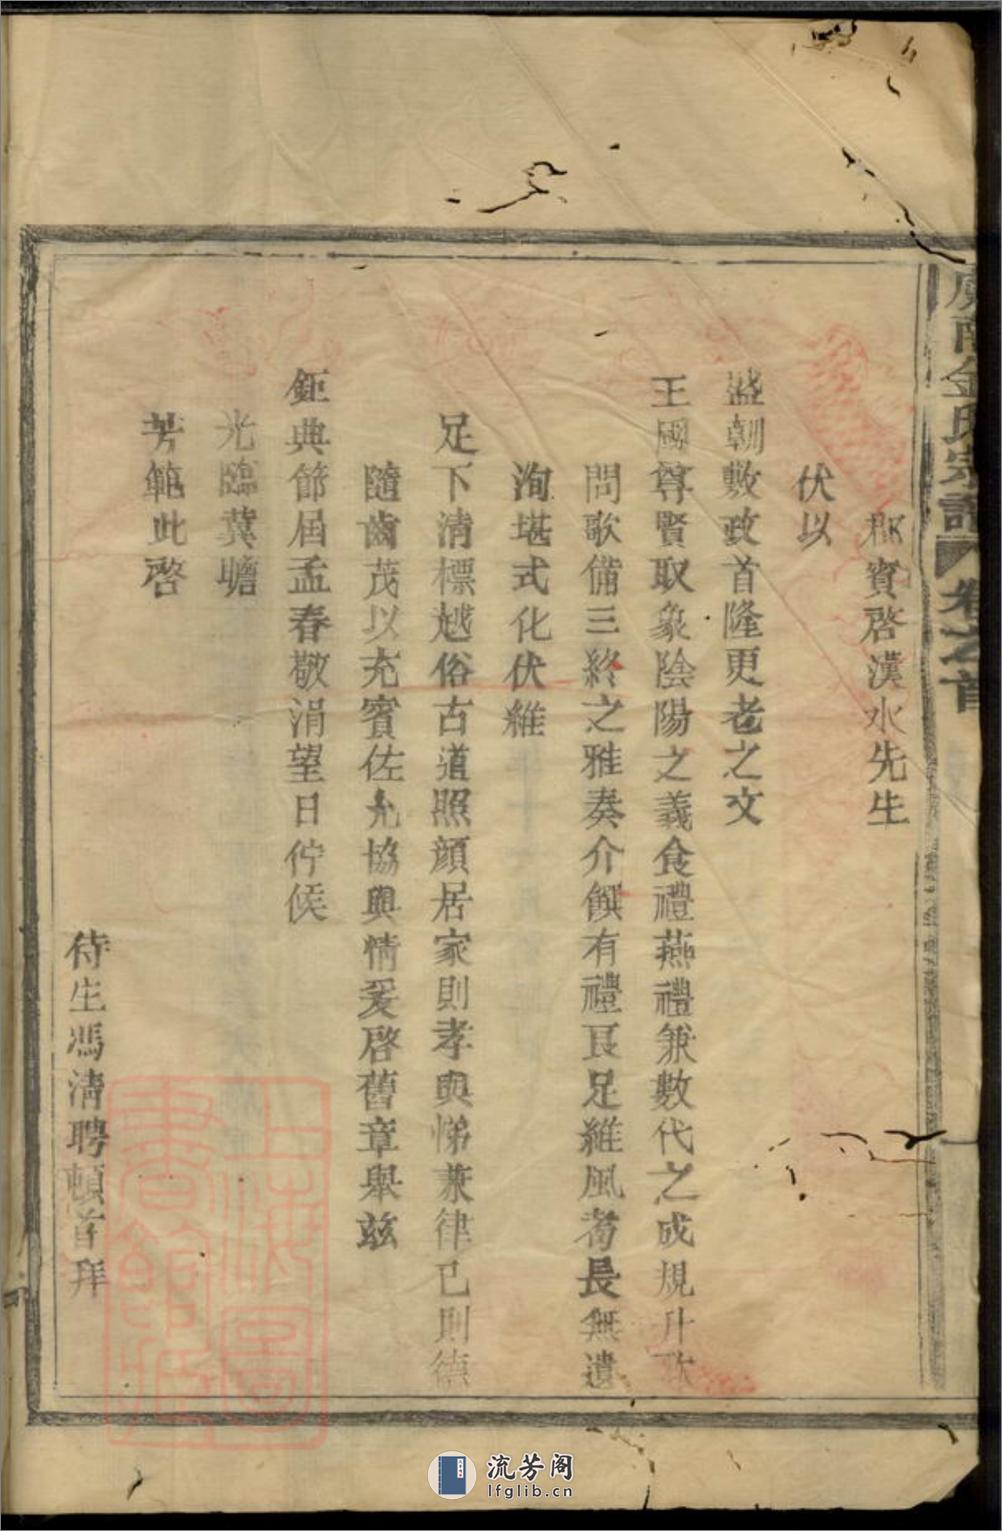 南金氏宗譜 卷之首 一
郡賓啓漢水先生
伏以
盛朝敷政首隆更老之文
王國尊賢取象陰陽之義食禮燕禮兼數代之成規升歌
問歌備三終之雅奏介饌有禮良足維風耇長無遺
洵堪式化伏維
足下清標越俗古道照顏居家則孝與悌兼律已則德
隨齒茂以充賓佐允協輿情爰啓舊章舉茲
鉅典節屆孟春敬涓望日佇候
光臨冀瞻
芳範此啓
侍生馮清聘頓首拜
上海圖書館藏
流芳阁
lfglib.cn